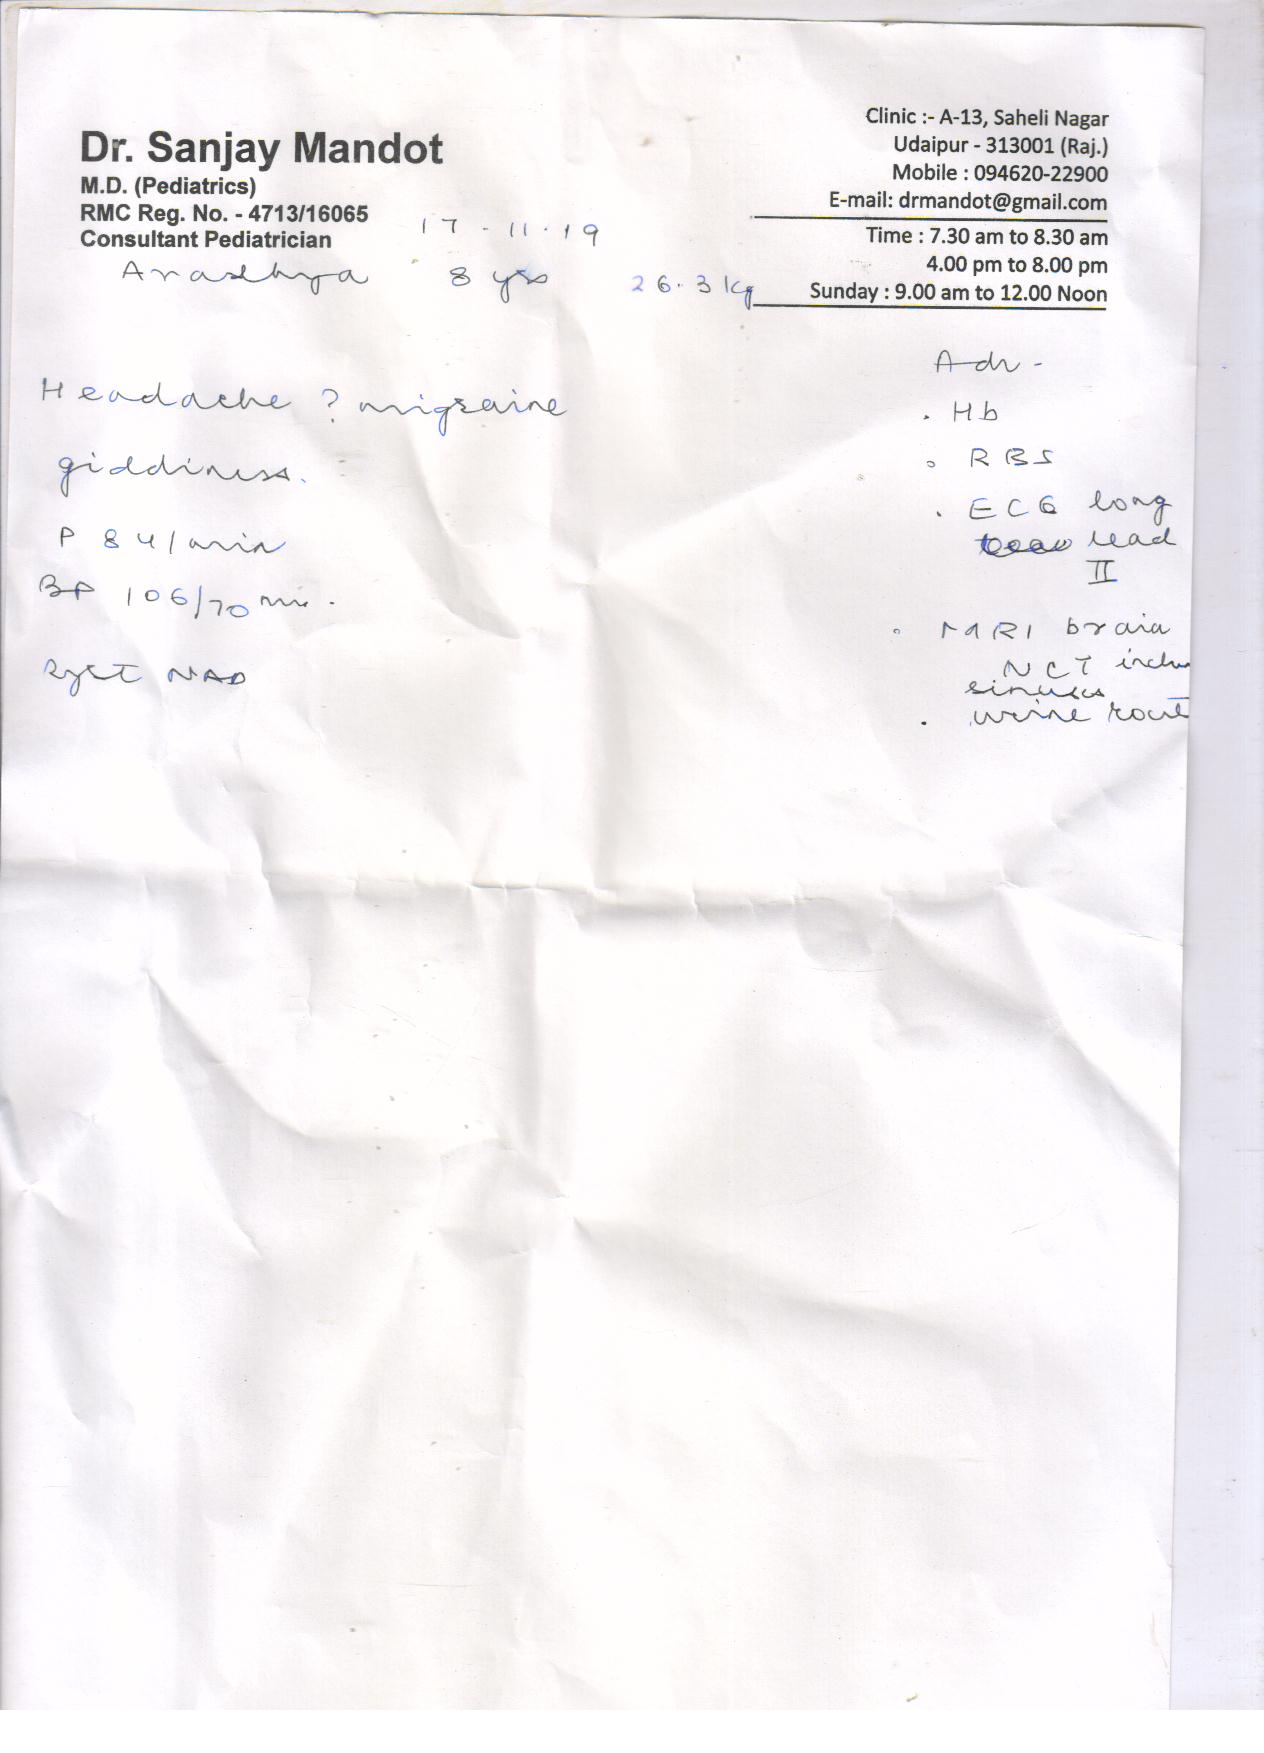 Dr. Sanjay Mandot
M.D. (Pediatrics)
RMC Reg. No. - 4713/16065
Consultant Pediatrician
Clinic :- A-13, Saheli Nagar
Udaipur - 313001 (Raj.)
Mobile : 094620-22900
E-mail: drmandot@gmail.com
Time : 7.30 am to 8.30 am
4.00 pm to 8.00 pm
Sunday : 9.00 am to 12.00 Noon
17-11.19
8 yrs 26.3 kg
Headache ? migraine
giddiness.
P 84/min
BP 106/70 mm.
NAD
Adv -
. Hb
. RBS
. ECG long
lead
II
. MRI brain
NCT inclu
sinuses
. urine rout